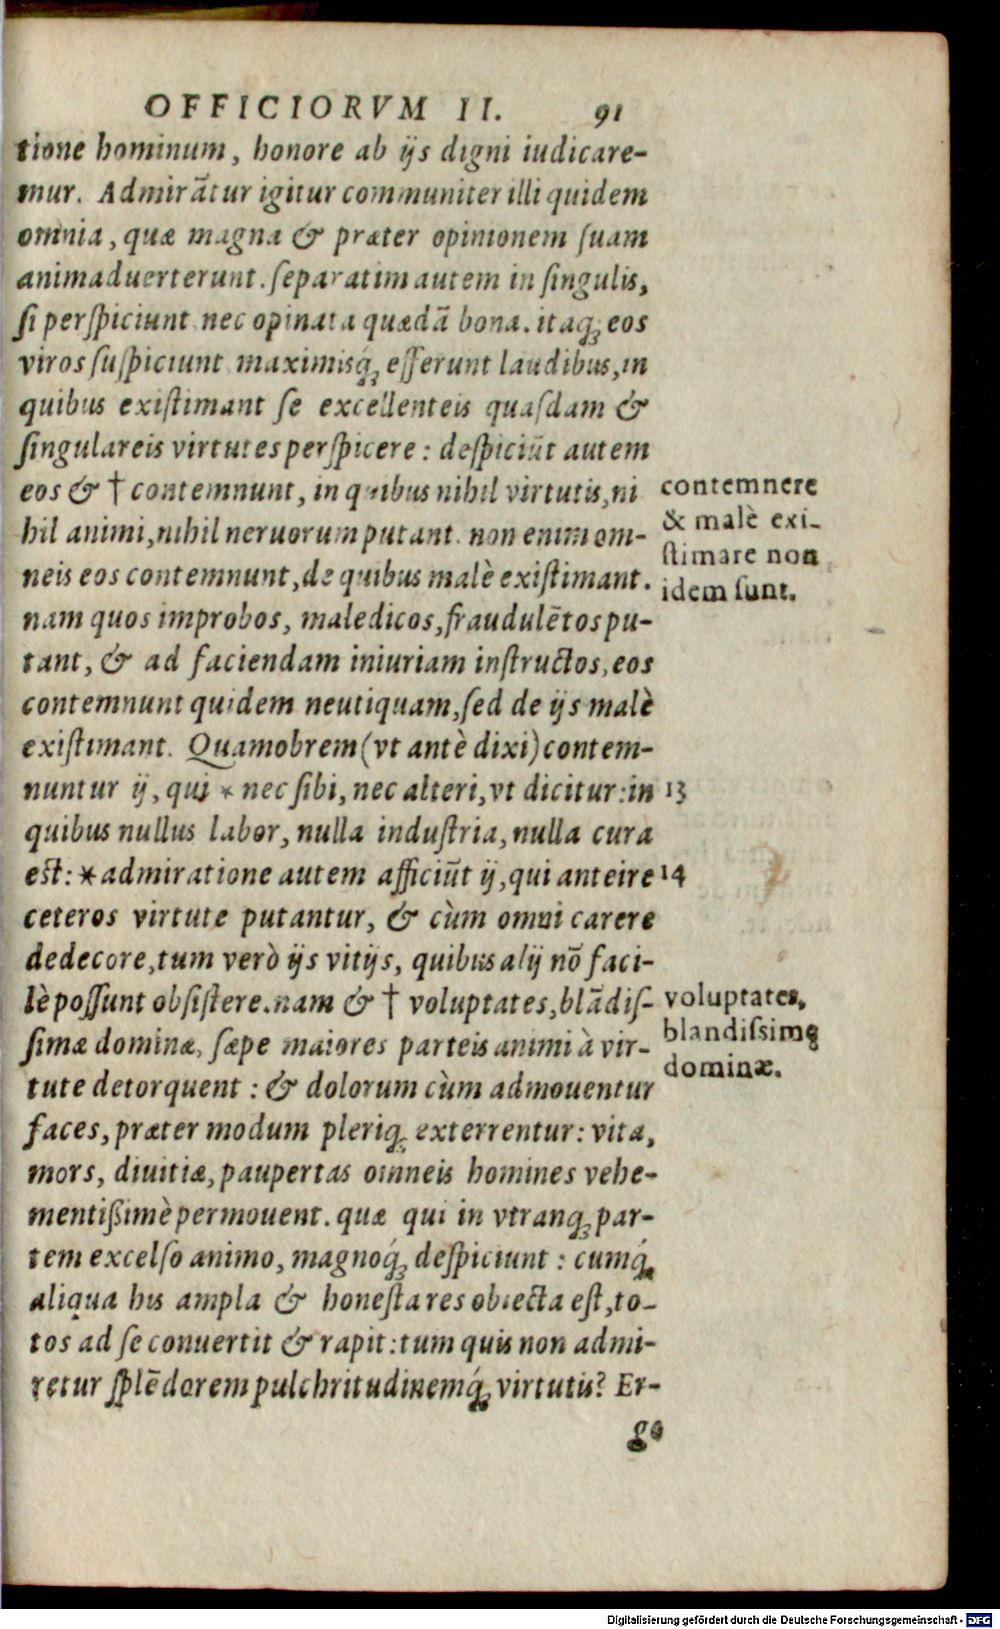 OFFICIORVM II. 91
tione hominum, honore ab ijs digni iudicare-
mur. Admirãtur igitur communiter illi quidem
omnia, quæ magna & præter opinionem suam
animaduerterunt. separatim autem in singulis,
si perspiciunt nec opinata quædã bona. itaq; eos
viros suspiciunt maximisq́; efferunt laudibus, in
quibus existimant se excellenteis quasdam &
singulareis virtutes perspicere: despiciũt autem
eos & † contemnunt, in quibus nihil virtutis, ni
hil animi, nihil neruorum putant. non enim om-
neis eos contemnunt, de quibus malè existimant.
nam quos improbos, maledicos, fraudulẽtos pu-
tant, & ad faciendam iniuriam instructos, eos
contemnunt quidem neutiquam, sed de ijs malè
existimant. Quamobrem (vt antè dixi) contem-
nuntur ij, qui * nec sibi, nec alteri, vt dicitur: in
quibus nullus labor, nulla industria, nulla cura
est: * admiratione autem afficiũt ij, qui anteire
ceteros virtute putantur, & cùm omni carere
dedecore, tum verò ijs vitijs, quibus alij nõ faci-
lè possunt obsistere. nam & † voluptates, blãdis-
simæ dominæ, sæpe maiores parteis animi à vir-
tute detorquent: & dolorum cùm admouentur
faces, præter modum pleriq; exterrentur: vita,
mors, diuitiæ, paupertas omneis homines vehe-
mentißimè permouent. quæ qui in vtranq; par-
tem excelso animo, magnoq́; despiciunt: cumq́;
aliqua his ampla & honesta res obiecta est, to-
tos ad se conuertit & rapit: tum quis non admi-
retur splẽdorem pulchritudinemq́; virtutis? Er-
go
contemnere
& malè exi-
stimare non
idem sunt.
13
14
voluptates,
blandissimę
dominæ.
Digitalisierung gefördert durch die Deutsche Forschungsgemeinschaft - DFG